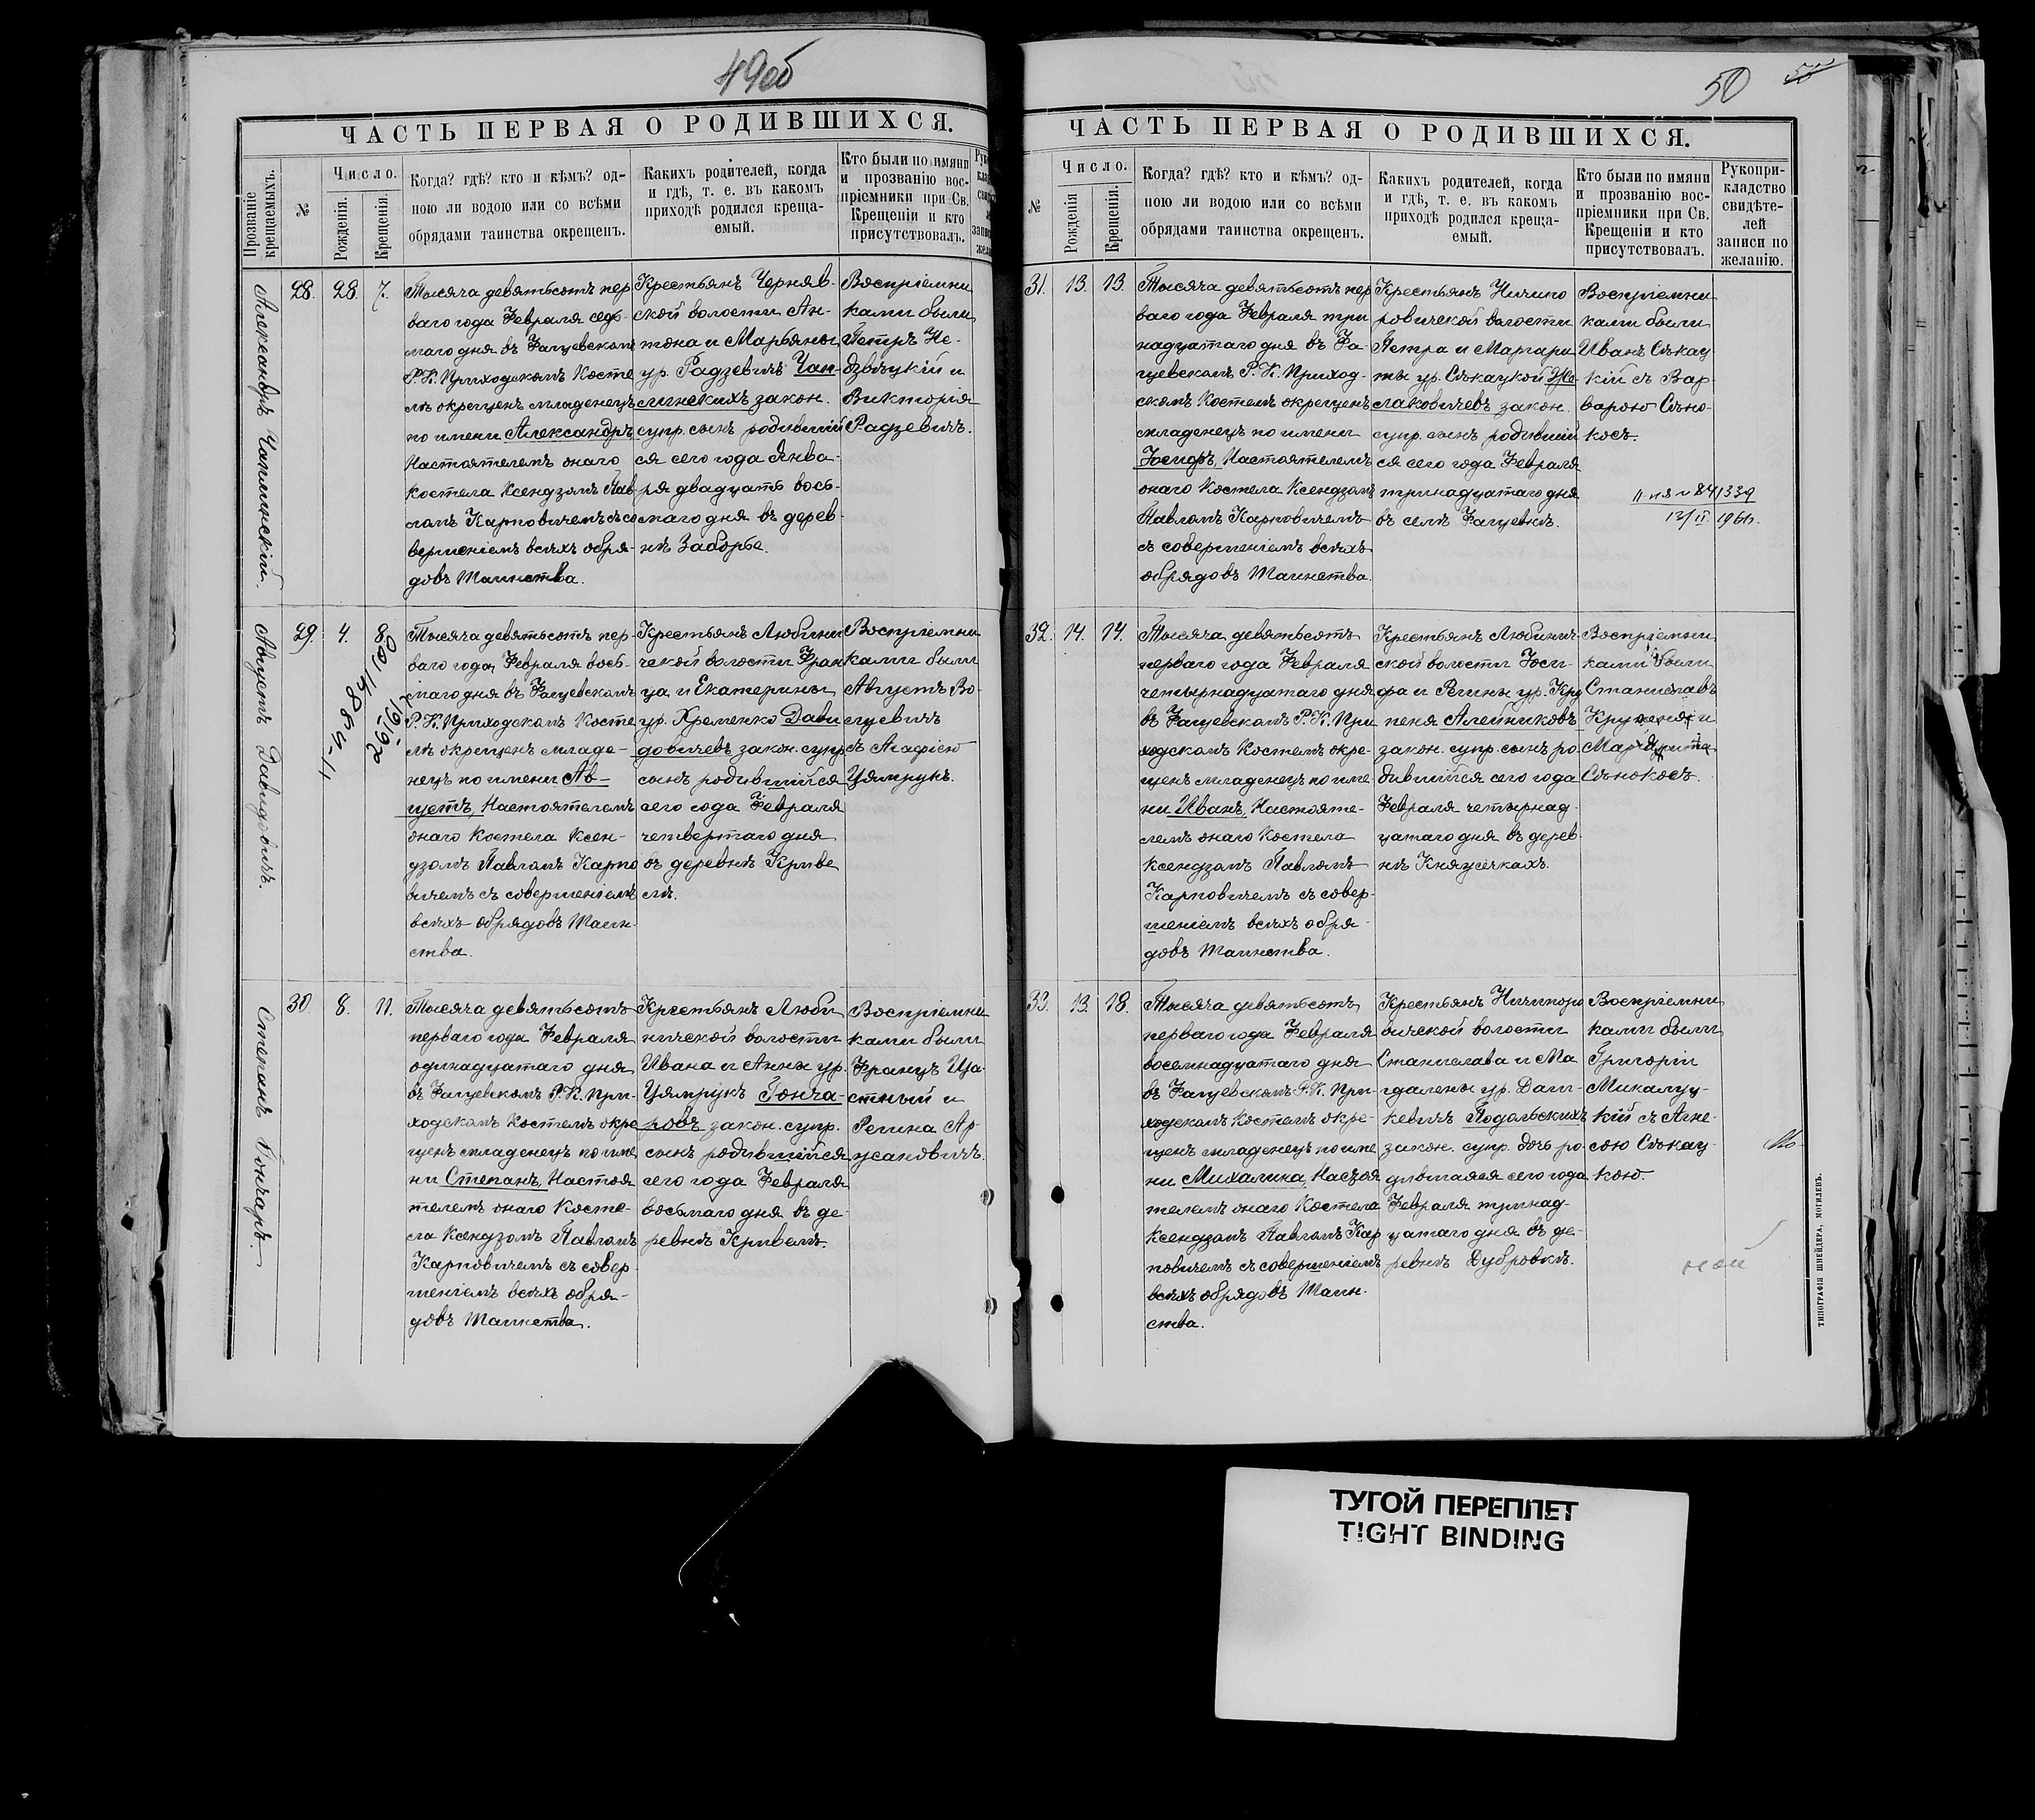 49об
ЧАСТЬ ПЕРВАЯ О РОДИВШИХСЯ.
Прозваніе крещаемыхъ.
№
Число.
Рожденія.
Крещенія.
Когда? гдѣ? кто и кѣмъ? од-
ною ли водою или со всѣми
обрядами таинства окрещенъ.
Какихъ родителей, когда
и гдѣ, т. е. въ какомъ
приходѣ родился креща-
емый.
Кто были по имяни
и прозванію вос-
пріемники при Св.
Крещеніи и кто
присутствовалъ.
Александръ Чаплинскій.
28.
28.
7.
Тысяча девятьсотъ пер
ваго года Февраля седь-
маго дня въ Фащевскомъ
Р. К. Приходскомъ Косте
лѣ окрещенъ младенецъ
по имени Александръ
Настоятелемъ онаго
костела Ксендзомъ Пав
ломъ Карповичемъ съ со
вершеніемъ всѣхъ обря-
довъ Таинства.
Крестьянъ Черняв-
ской волости Ан-
тона и Марьяны
ур. Радзевичъ Чап-
линскихъ закон.
супр. сынъ родивший
ся сего года Янва-
ря двадцать вось-
маго дня въ дерев-
нѣ Заборье.
Воспріемни
ками были
Петръ Не-
дзвѣцкій и
Викторія
Радзевичъ.
Августъ Давидовичъ.
29.
4.
8.
Тысяча девятьсотъ пер-
ваго года Февраля вось-
маго дня въ Фащевскомъ
Р. К. Приходскомъ Косте
лѣ окрещенъ младе-
нецъ по имени Ав-
густъ, Настоятелемъ
онаго Костела Ксен-
дзомъ Павломъ Карпо
вичемъ съ совершеніемъ
всѣхъ обрядовъ Таин-
ства.
Крестьянъ Любини
чской волости Фран
ца и Екатерины
ур. Хроменко Дави
довичевъ закон. супр.
сынъ родившийся
сего года Февраля
четвертаго дня
въ деревнѣ Криве
лѣ.
Воспріемни
ками были
Августъ Во-
лцевичъ
съ Агафіею
Цямрукъ.
Степанъ Гончаръ.
30.
8.
11.
Тысяча девятьсотъ
перваго года Февраля
одинадцатаго дня
въ Фащевскомъ Р. К. При-
ходскомъ Костелѣ окре
щенъ младенецъ по име
ни Степанъ, Настоя
телемъ онаго Косте-
ла Ксендзомъ Павломъ
Карповичемъ съ совер-
шеніемъ всѣхъ обря-
довъ Таинства.
Крестьянъ Люби
ничской волости
Ивана и Анны ур.
Цямрукъ Гонча-
ровъ закон. супр.
сынъ родившийся
сего года Февраля
восьмаго дня въ де-
ревнѣ Кривелѣ.
Воспріемни
ками были
Францъ Ща-
стный и
Регина Ар-
цсановичъ.
50
ЧАСТЬ ПЕРВАЯ О РОДИВШИХСЯ.
№
Число.
Рожденія
Крещенія.
Когда? гдѣ? кто и кѣмъ? од-
ною ли водою или со всѣми
обрядами таинства окрещенъ.
Какихъ родителей, когда
и гдѣ, т. е. въ какомъ
приходѣ родился креща-
емый.
Кто были по имяни
и прозванію вос-
пріемники при Св.
Крещеніи и кто
присутствовалъ.
Рукопри-
кладство
свидѣте-
лей
записи по
желанію.
31.
13.
13.
Тысяча девятьсотъ пер
ваго года Февраля три
надцатаго дня въ Фа-
щевскомъ Р. К. Приход-
скомъ Костелѣ окрещенъ
младенецъ по имени
Іосифъ, Настоятелемъ
онаго Костела Ксендзомъ
Павломъ Карповичемъ
съ совершеніемъ всѣхъ
обрядовъ Таинства.
Крестьянъ Ничипо
ровичской волости
Петра и Маргари
ты ур. Сѣкацкой Же-
лаковичевъ закон.
супр. сынъ родивший
ся сего года Февраля
тринадцатаго дня
въ селѣ Фащевкѣ.
Воспріемни
ками были
Иванъ Сѣкац
кій съ Вар
варою Сѣно-
косъ.
32.
14.
14.
Тысяча девятьсотъ
перваго года Февраля
четырнадцатаго дня
въ Фащевскомъ Р. К. При
ходскомъ Костелѣ окре-
щенъ младенецъ по име
ни Иванъ, Настояте-
лемъ онаго Костела
Ксендзомъ Павломъ
Карповичемъ съ совер-
шеніемъ всѣхъ обря
довъ Таинства.
Крестьянъ Любинич-
ской волости Іоси-
фа и Регины ур. Кру
пеня Алейниковъ
закон. супр. сынъ ро
дившийся сего года
Февраля четырнад-
цатаго дня въ дерев
нѣ Княжечкахъ.
Воспріемни
ками были
Станиславъ
Крупеня и
Маргарита
Сѣнокосъ.
33.
13.
18.
Тысяча девятьсотъ
перваго года Февраля
восемнадцатаго дня
въ Фащевскомъ Р. К. При-
ходскомъ Костелѣ окре-
щенъ младенецъ по име
ни Михалина, Настоя
телемъ онаго Костела
Ксендзомъ Павломъ Кар
повичемъ съ совершеніемъ
всѣхъ обрядовъ Таин-
ства.
Крестьянъ Ничипоро
вичской волости
Станислава и Ма
гдалены ур. Даш-
кевичъ Подольскихъ
закон. супр. дочь ро
дившаяся сего года
Февраля тринад-
цатаго дня въ де-
ревнѣ Дубровкѣ.
Воспріемни
ками были
Григорій
Микалуц-
кій съ Агне-
сою Сѣкац-
кою.
ТИПОГРАФІЯ ШНЕЙДЕРА, МОГИЛЕВЪ.
ТУГОЙ ПЕРЕПЛЕТ
TIGHT BINDING